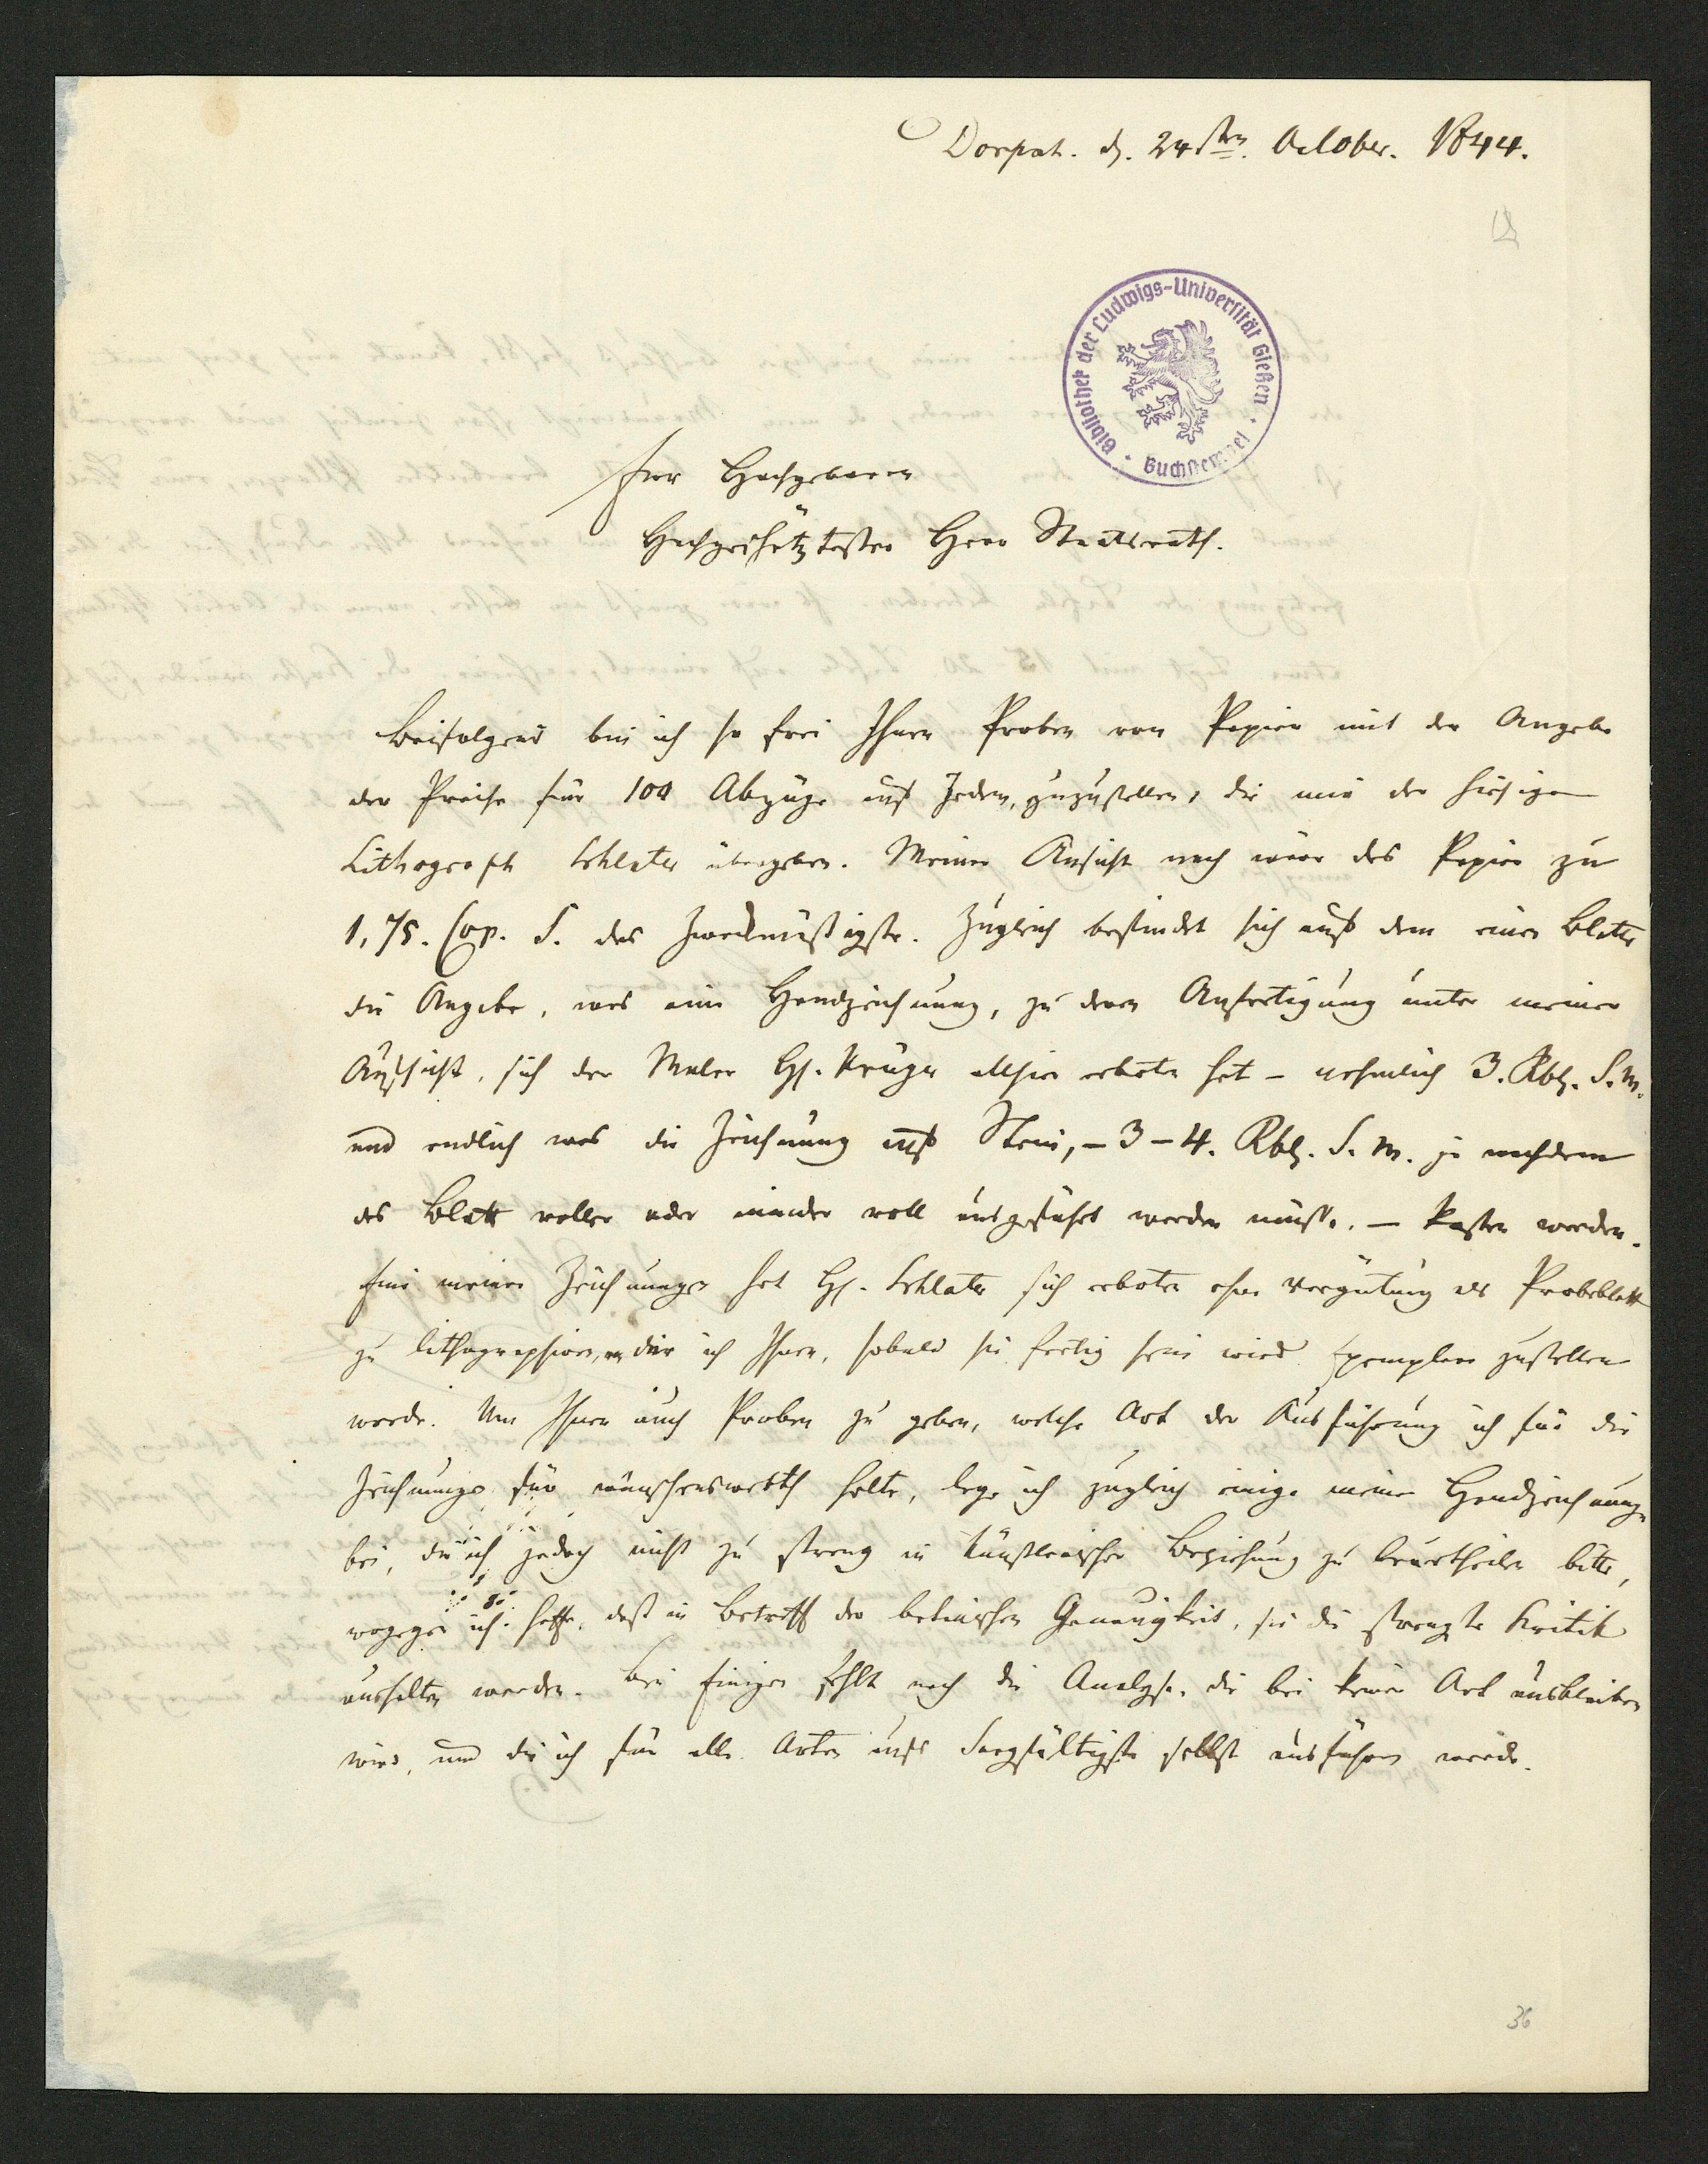 Dorpat. d. 24sten. October. 1844.
Bibliothek der Ludwigs-Universität Gießen
Buchstempel
Euer Hochgeboren
Hochgeschätztester Herr Staatsrath.
Beifolgend bin ich so frei Ihnen Proben von Papier mit der Angabe
der Preise für 100 Abzüge auf Jedem, zuzustellen, die mir der hiesige
Lithograph Schlater übergeben. Meiner Ansicht nach wäre das Papier zu
1,75. Cop. S. das Zweckmäßigste. Zugleich befindet sich auf dem einen Blatte
die Angabe, was eine Handzeichnung, zu deren Anfertigung unter meiner
Aufsicht, sich der Maler H. Krüger allhier erboten hat – nehmlich 3. Rbl. S. M.
und endlich was die Zeichnung auf Stein, – 3 – 4. Rbl. S. M. je nachdem
das Blatt voller oder minder voll ausgeführt werden müsste. – kosten werden.
Eine meiner Zeichnungen hat H. Schlater sich erboten ohne Vergütung als Probeblatt
zu lithographiren, die ich Ihnen, sobald sie fertig sein wird Exemplare zustellen
werde. Um Ihnen auch Proben zu geben, welche Art der Ausführung ich für die
Zeichnungen für wünschenswerth halte, lege ich zugleich einige meiner Handzeichnungen
bei, die ich jedoch nicht zu streng in künstlerischer Beziehung zu beurtheilen bitte,
wogegen ich hoffe, daß in Betreff der botanischen Genauigkeit, sie die strengste Kritik
aushalten werden. Bei Einigen fehlt noch die Analyse, die bei keiner Art ausbleiben
wird, und die ich für alle Arten aufs Sorgfältigste selbst ausführen werde.
36